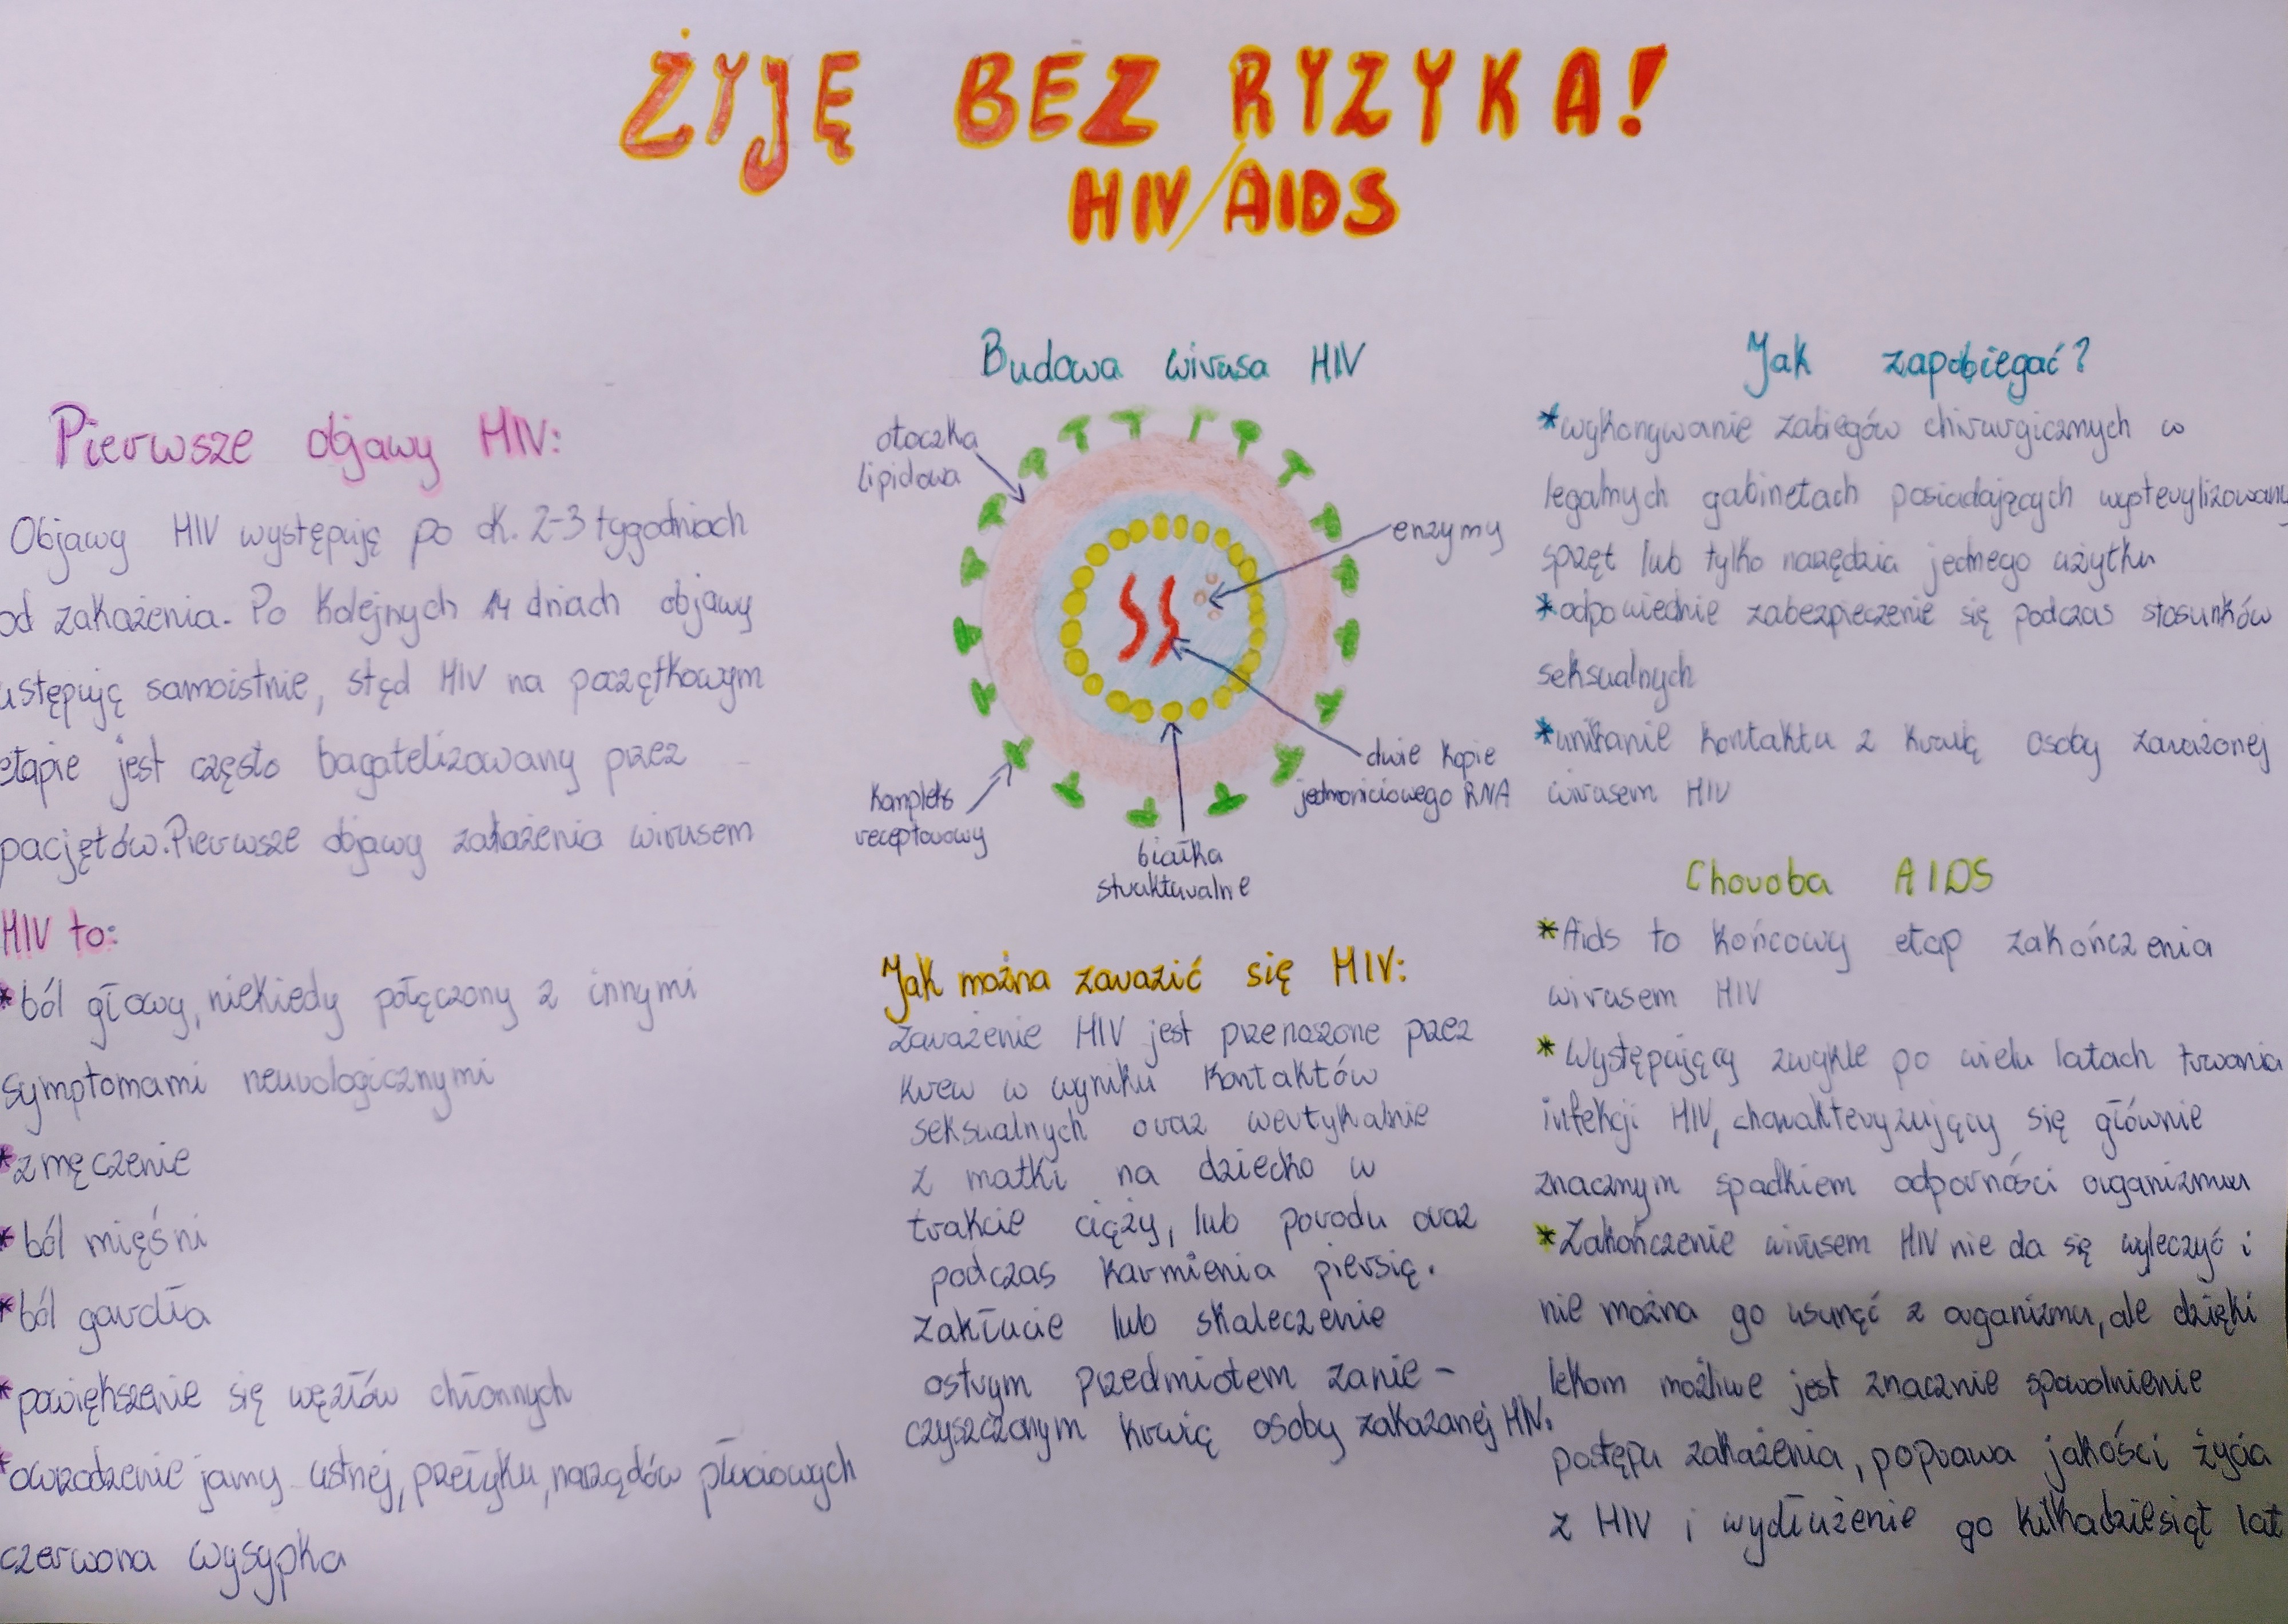 ŻYJĘ BEZ RYZYKA!
HIV/AIDS
Pierwsze objawy HIV:
Objawy HIV występuję po ok. 2-3 tygodniach
od zakażenia. Po kolejnych 14 dniach objawy
ustępuję samoistnie, stęd HIV na poczętkowym
etapie jest często bagatelizowany przez
pacjętów. Pierwsze objawy zakażenia wirusem
HIV to:
*ból głowy, niekiedy połęczony z innymi
symptomami neurologicznymi
*zmęczenie
*ból mięśni
*ból gardła
*powiększenie się węzłów chłonnych
*owrzodzenie jamy ustnej, przełyku, narządów płciowych
czerwona wysypka
Budowa wirusa HIV
otoczka
lipidowa
enzymy
dwie kopie
jednoniciowego RNA
kompleks
receptorowy
białka
strukturalne
Jak można zarazić się HIV:
Zarażenie HIV jest przenoszone przez
krew w wyniku kontaktów
seksualnych oraz wertykalnie
z matki na dziecko w
trakcie ciąży, lub porodu oraz
podczas karmienia piersię.
Zakłucie lub skaleczenie
ostrym przedmiotem zanie-
czyszczonym krwię osoby zakażanej HIV.
Jak zapobiegać?
*wykonywanie zabiegów chirurgicznych w
legalnych gabinetach posiadających wysterylizowany
sprzęt lub tylko narzędzia jednego użytku
*odpowiednie zabezpieczenie się podczas stosunków
seksualnych
*unikanie kontaktu z krwią osoby zarażonej
wirusem HIV
Choroba AIDS
*Aids to końcowy etap zakończenia
wirusem HIV
*Występujęcy zwykle po wielu latach trwania
infekcji HIV, charakteryzujęcy się głównie
znacznym spadkiem odporności organizmu
*Zakończenie wirusem HIV nie da się wyleczyć i
nie można go usunęć z organizmu, ale dzięki
lekom możliwe jest znacznie spowolnienie
postępu zakażenia, poprawa jakości życia
z HIV i wydłużenie go kilkadziesięt lat